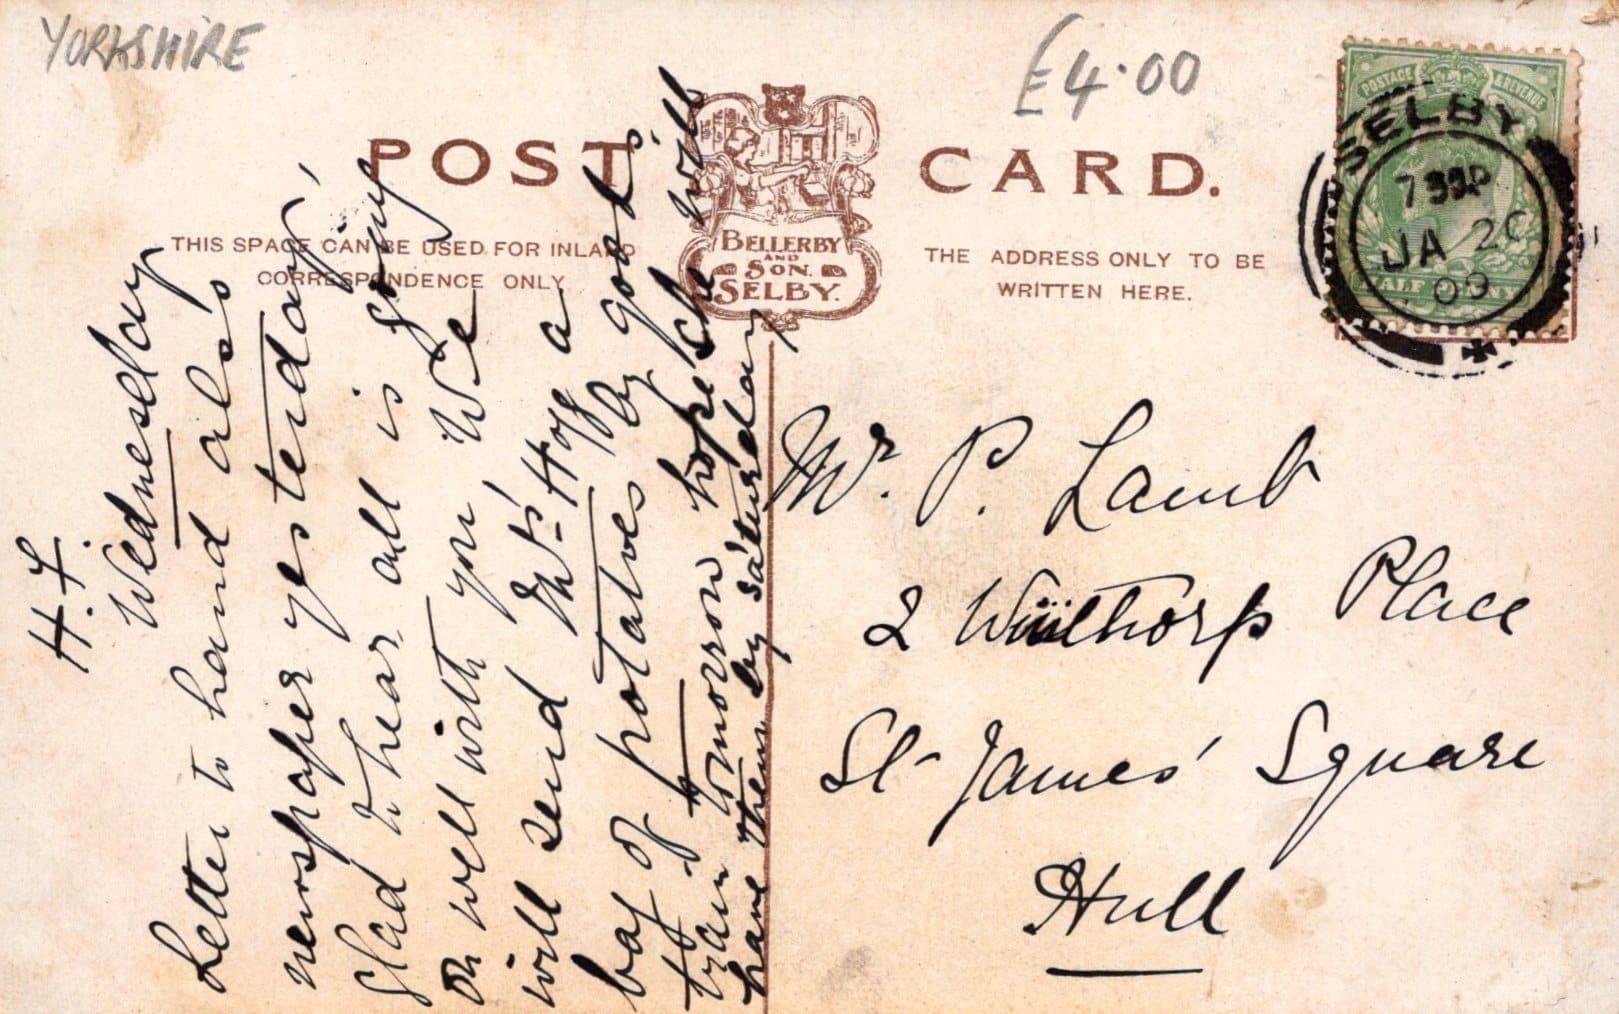 YORKSHIRE
£4.00
POST CARD.
BELLERBY
AND
SON.
SELBY.
THIS SPACE CAN BE USED FOR INLAND
CORRESPONDENCE ONLY
THE ADDRESS ONLY TO BE
WRITTEN HERE.
POSTAGE & REVENUE
HALF PENNY
SELBY
JA 20
09
H.F.
Wednesday
Letter to hand als
newspaper yesterday,
glad to hear all is going
on well with you, We
will send Mrs Hogg a
bag of potatoes by goods
train tomorrow hope she will
have them by saturday
Mr. P. Lamb
2 Winthorp Place
St James' Square
Hull